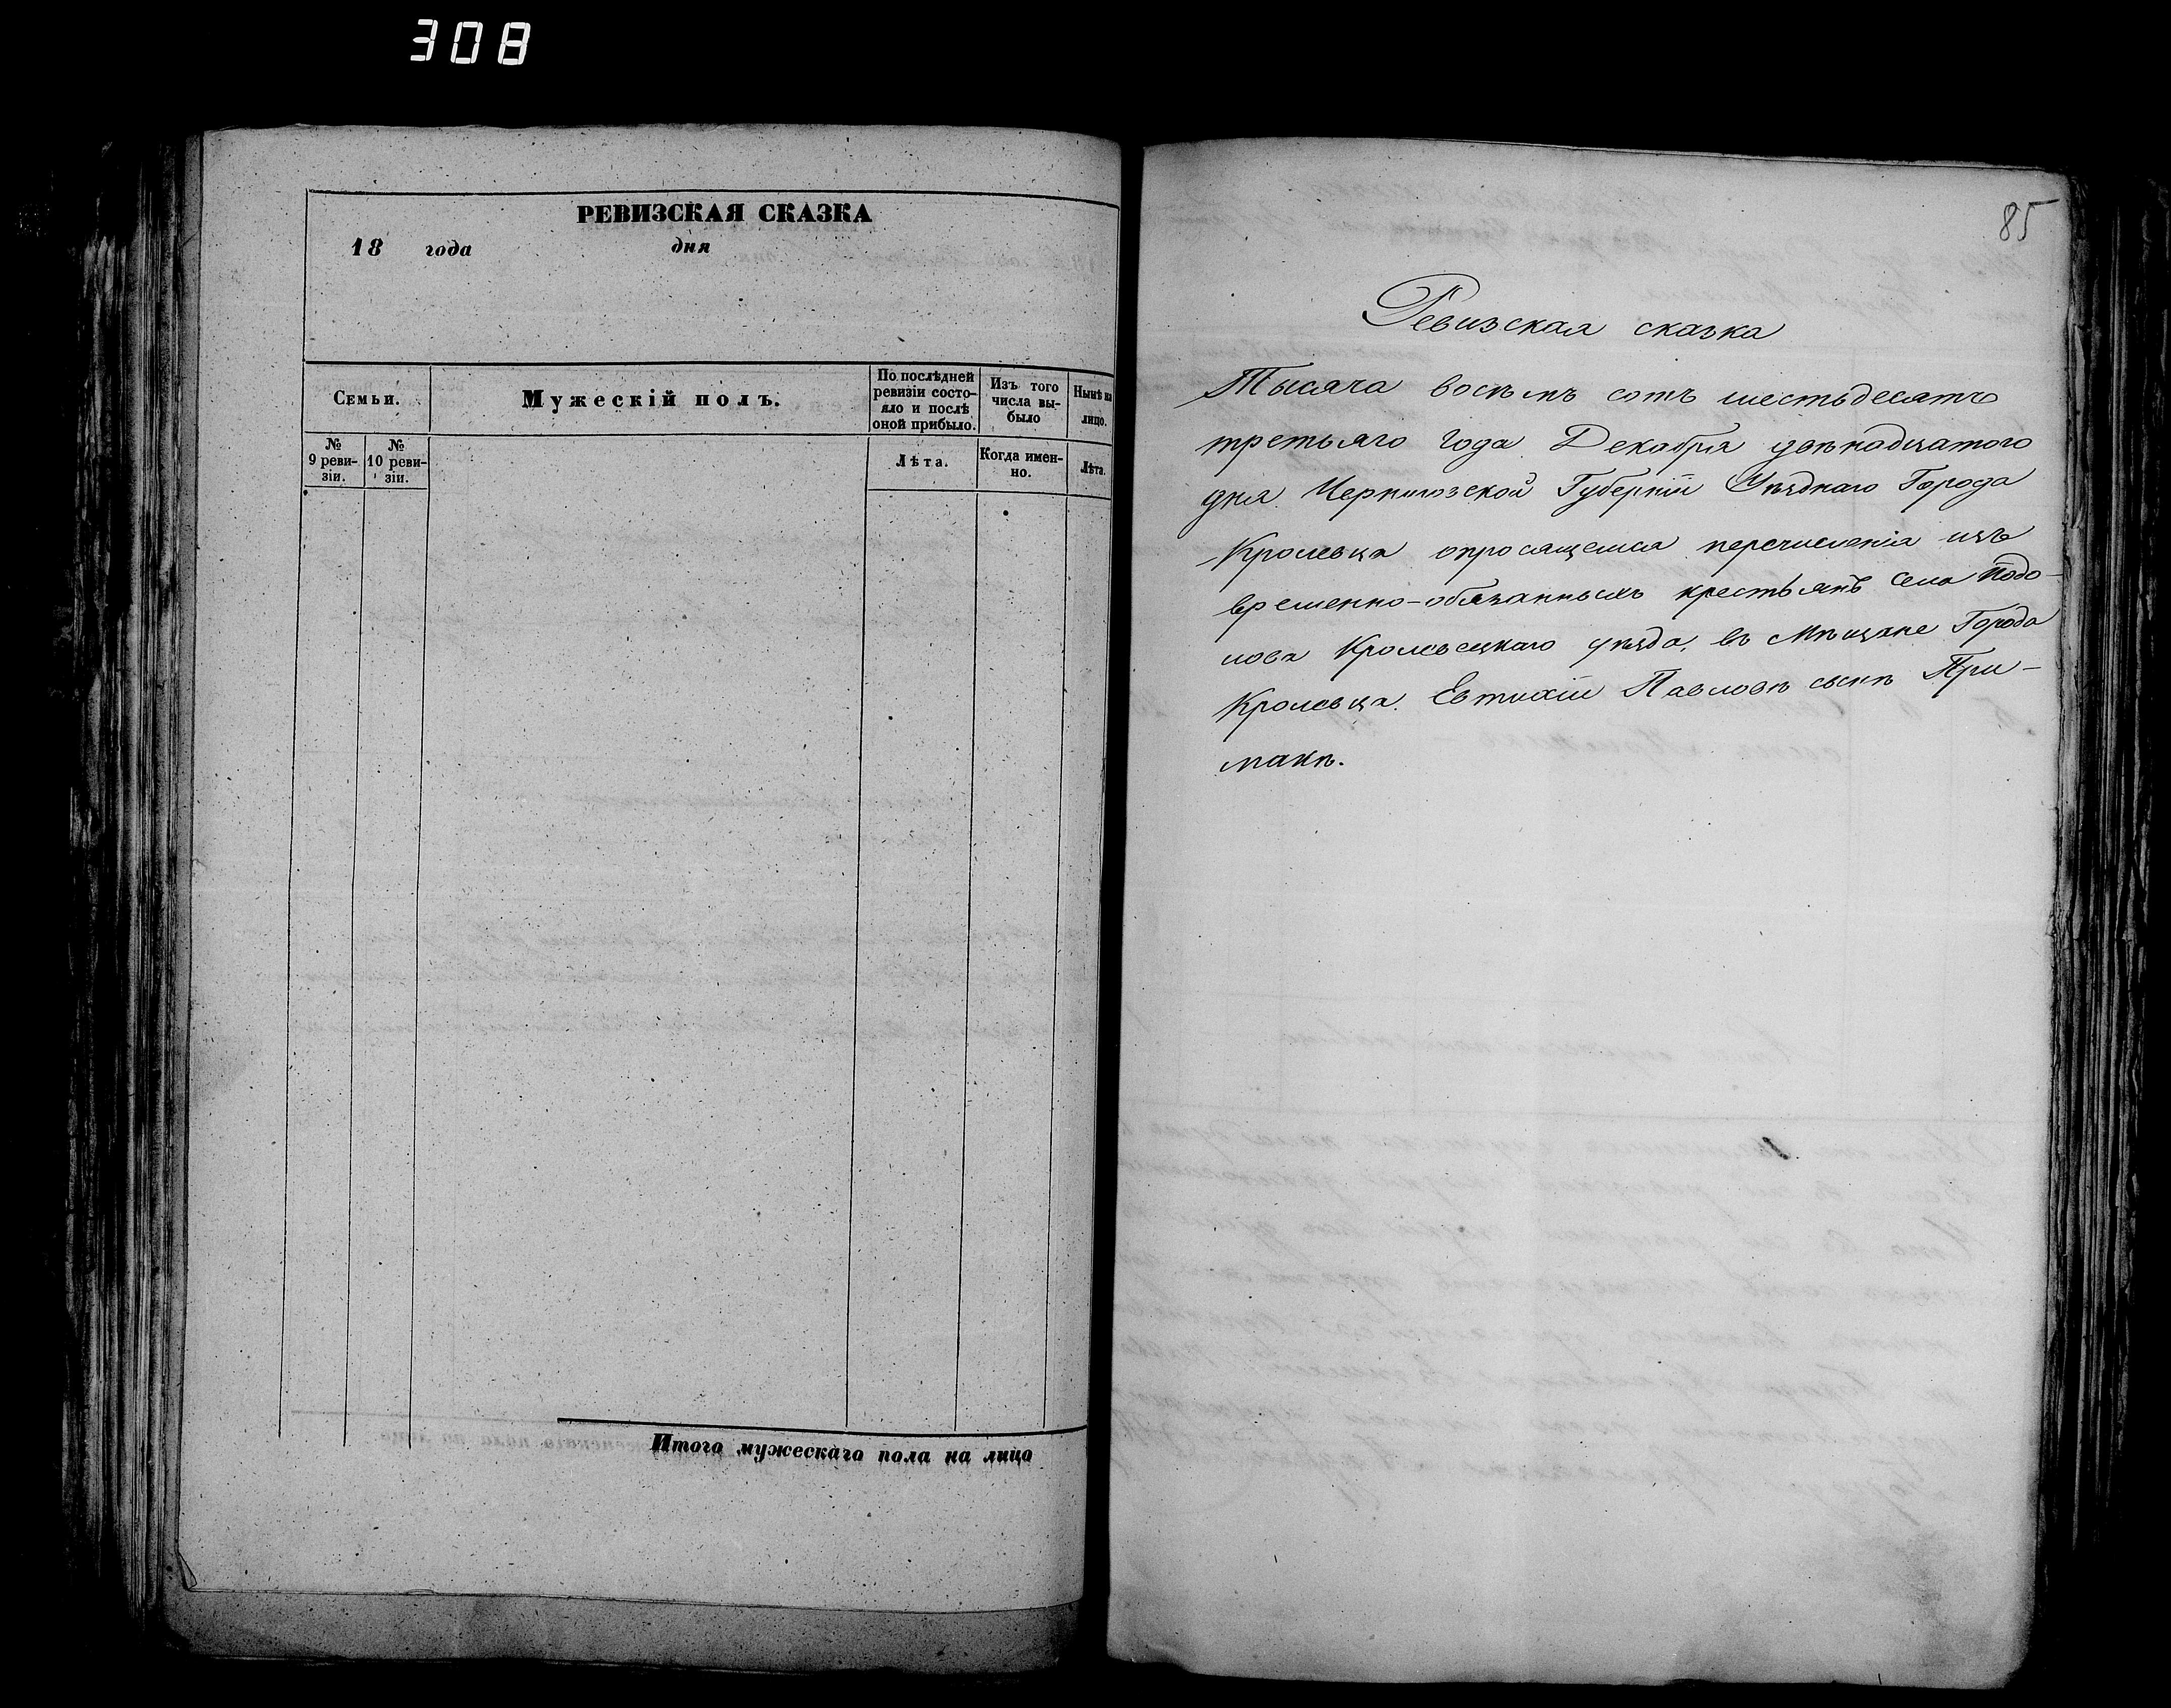 308
РЕВИЗСКАЯ СКАЗКА
18 года дня
Семьи.
Мужескій полъ.
По послѣдней
ревизіи состо-
яло и послѣ
оной прибыло.
Изъ того
числа вы-
было
Нынѣ на
лицо.
№
9 реви-
зіи.
№
10 реви-
зіи.
Лѣта.
Когда имен-
но.
Лѣта.
Итого мужескаго пола на лицо
85
Ревизская сказка
Тысяча восѣмъ сотъ шестьдесятъ
третьяго года Декабря двѣнадцатого
дня Черниговской Губерніи Уѣзднаго Города
Кролевца опросящемся перечисленія изъ
временно-обязанныхъ крестьянъ села Подо-
лова Кролевецкаго уѣзда, въ Мѣщане Города
Кролевца. Евтихіи Павловъ сынъ При-
макъ.